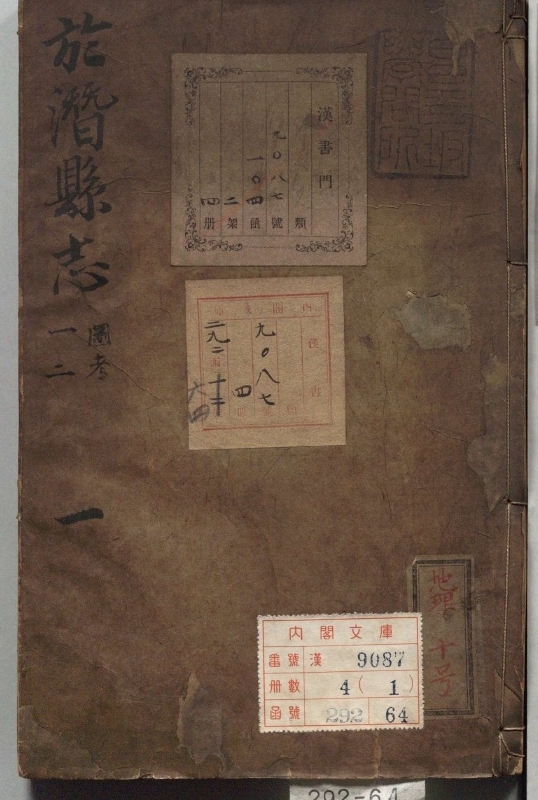 於潛縣志
圖考
一二
一
漢書門
九〇八七
一〇四
二
四
類
號
函
架
冊
漢書
九〇八七
四
二九二
函
十二
大四
内閣文庫
番號 漢 9087
冊數 4(1)
函號 292 64
十号
292-64